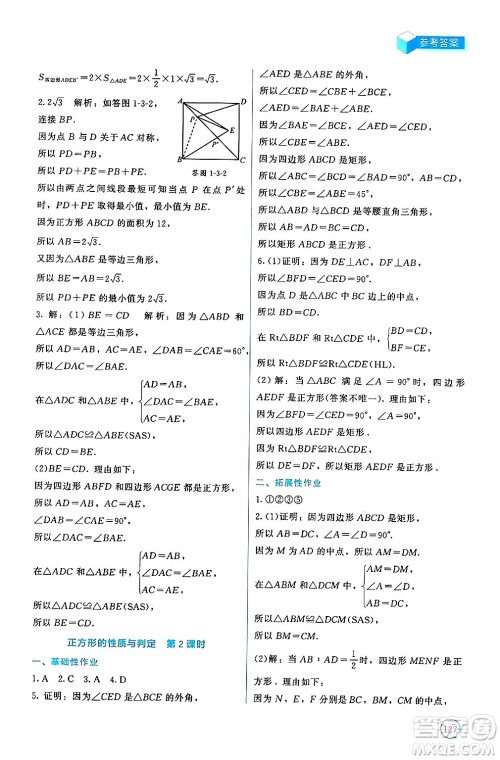 参考答案
S四边形ADEB'=2×S△ADE=2×1/2×1×√3=√3.
2.2√3　解析：如答图1-3-2,
连接BP.
因为点B与D关于AC对称,
所以PD=PB.
所以PD+PE=PB+PE.
A
D
P
E
P'
B
C
答图1-3-2
所以由两点之间线段最短可知当点P在点P'处
时，PD+PE的值最小，最小值为BE.
因为正方形ABCD的面积为12,
所以AB=2√3.
又因为△ABE是等边三角形,
所以BE=AB=2√3.
所以PD+PE的最小值为2√3.
3.解：(1)BE=CD　解析：因为△ABD和
△ACE都是等边三角形,
所以AD=AB, AC=AE, ∠DAB=∠CAE=60°,
所以∠DAC=∠BAE.
在△ADC和△ABE中,{AD=AB,
∠DAC=∠BAE,
AC=AE,
所以△ADC≌△ABE(SAS),
所以CD=BE.
(2)BE=CD. 理由如下：
因为四边形ABFD和四边形ACGE都是正方形,
所以AD=AB, AC=AE,
∠DAB=∠CAE=90°,
所以∠DAC=∠BAE.
在△ADC和△ABE中,{AD=AB,
∠DAC=∠BAE,
AC=AE,
所以△ADC≌△ABE(SAS),
所以CD=BE.
正方形的性质与判定　第2课时
一、基础性作业
1.A　2.C　3.A　4.D
5.证明：因为∠CED是△BCE的外角,
∠AED是△ABE的外角,
所以∠CED=∠CBE+∠BCE,
∠AED=∠BAE+∠ABE.
因为∠BAE=∠BCE, ∠AED=∠CED,
所以∠CBE=∠ABE.
因为四边形ABCD是矩形,
所以∠ABC=∠BCD=∠BAD=90°,
所以∠CBE=∠ABE=45°,
所以△ABD与△BCD是等腰直角三角形.
所以AB=AD=BC=CD,
所以四边形ABCD是正方形.
6.(1)证明：因为DE⊥AC, DF⊥AB,
所以∠BFD=∠CED=90°.
因为D是BC的中点,
所以BD=CD.
在Rt△BDF与Rt△CDE中,{BD=CD,
BF=CE,
所以Rt△BDF≌Rt△CDE(HL).
(2)解：当△ABC满足∠A=90°时，四边形
AEDF是正方形(答案不唯一). 理由如下：
因为∠BFD=∠CED=∠A=90°,
所以四边形AEDF是矩形.
因为Rt△BDF≌Rt△CDE,
所以DE=DF, 所以矩形AEDF是正方形.
二、拓展性作业
1.①②③⑤
2.(1)证明：因为四边形ABCD是矩形,
所以AB=DC, ∠A=∠D.
因为M是AD的中点,
所以AM=DM.
在△ABM和△DCM中,{AM=DM,
∠A=∠D,
AB=DC,
所以△ABM≌△DCM(SAS),
所以BM=CM.
(2)解：当AB/AD=1/2时，四边形MENF是正方
形. 理由如下：
因为N, E, F分别是BC, BM, CM的中点,
127